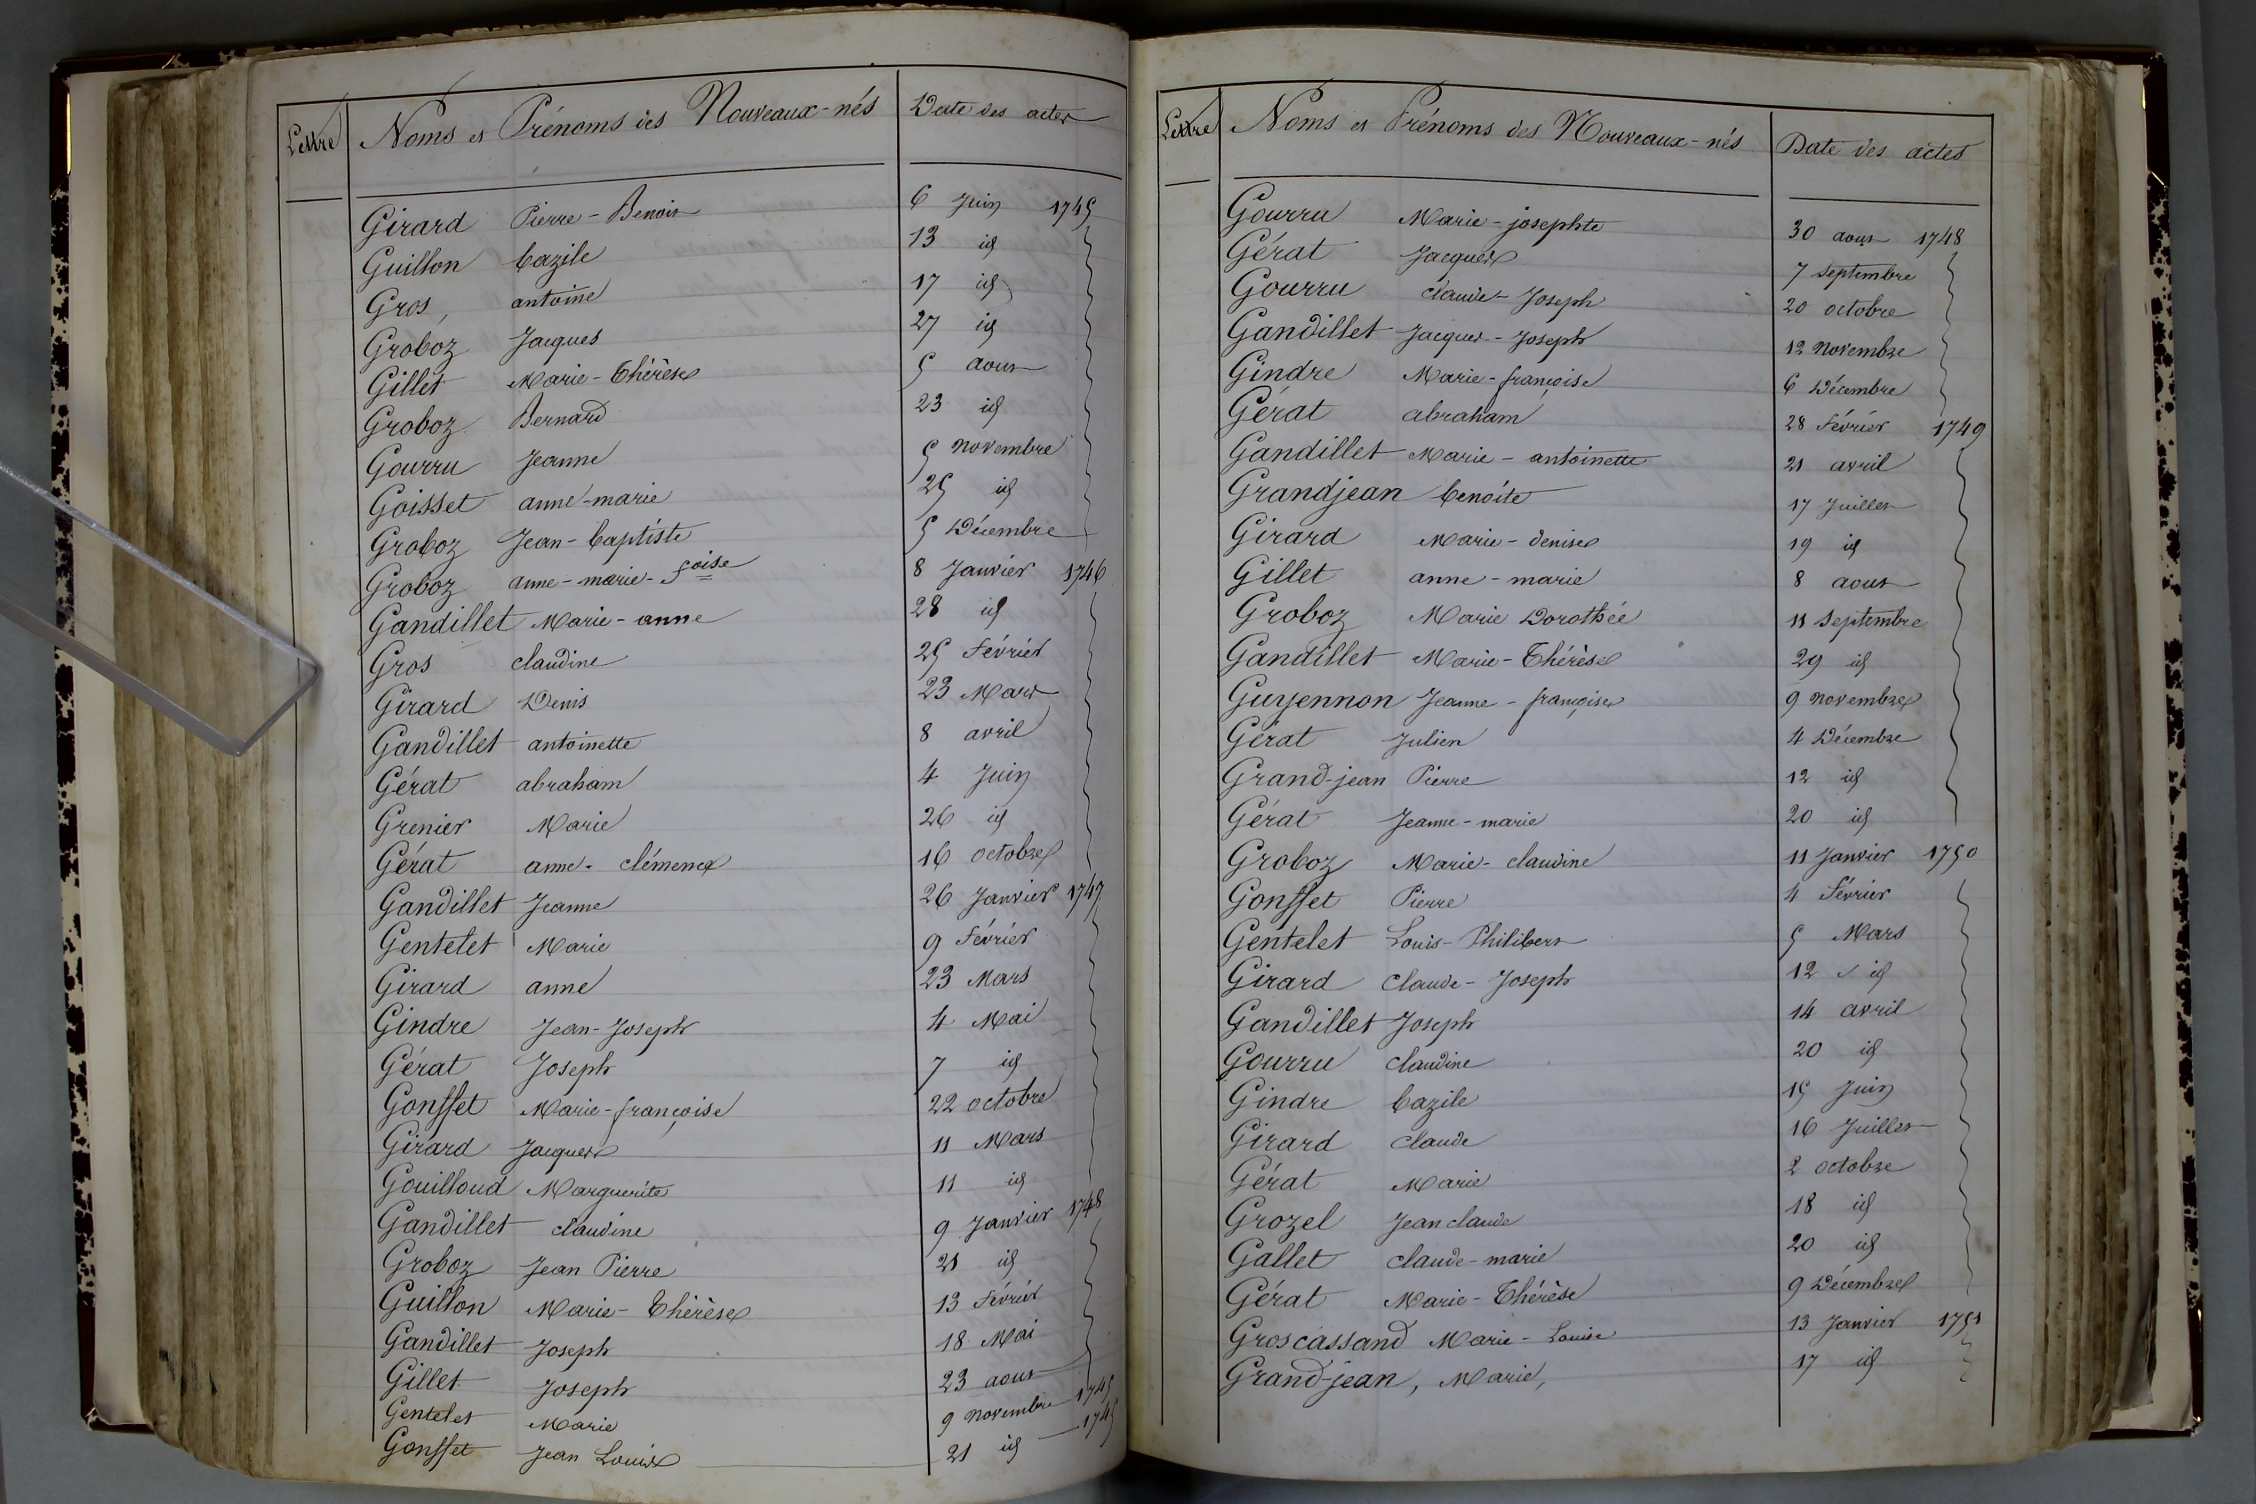 Lettre Noms et Prénoms des Nouveaux-nés Date des actes
Girard Pierre-Benoit 6 Juin 1745
Guillon bazile 13 id
Gros, antoine 17 id
Groboz Jacques 27 id
Gillet Marie-Thérèse 5 aout
Groboz Bernard 23 id
Gourru Jeanne 5 novembre
Goisset anne-marie 25 id
Groboz Jean-baptiste 5 Décembre
Groboz anne-marie-foise 8 Janvier 1746
Gandillet Marie-anne 28 id
Gros claudine 25 Février
Girard Denis 23 Mars
Gandillet antoinette 8 avril
Gérat abraham 4 Juin
Grenier Marie 26 id
Gérat anne-clémence 16 octobre
Gandillet Jeanne 26 Janvier 1747
Gentelet Marie 9 Février
Girard anne 23 Mars
Gindre Jean-Joseph 4 Mai
Gérat Joseph 7 id
Gonsset Marie-françoise 22 octobre
Girard Jacques 11 Mars
Gouilloud Marguerite 11 id
Gandillet claudine 9 Janvier 1748
Groboz Jean Pierre 21 id
Guillon Marie-Thérèse 13 Février
Gandillet Joseph 18 Mai
Gillet Joseph 23 aout
Gentelet Marie 9 novembre 1745
Gonsset Jean Louis 21 id 1745
Lettre Noms et Prénoms des Nouveaux-nés Date des actes
Gourru Marie-josephte 30 aout 1748
Gérat Jacques 7 septembre
Gourru claude-Joseph 20 octobre
Gandillet Jacques-Joseph 12 Novembre
Gindre Marie-françoise 6 Décembre
Gérat abraham 28 Février 1749
Gandillet Marie-antoinette 21 avril
Grandjean benoite 17 Juillet
Girard Marie-denise 19 id
Gillet anne-marie 8 aout
Groboz Marie Dorothée 11 septembre
Gandillet Marie-Thérèse 29 id
Guyennon Jeanne-françoise 9 novembre
Gérat Julien 4 Décembre
Grand-jean Pierre 12 id
Gérat Jeanne-marie 20 id
Groboz Marie-claudine 11 Janvier 1750
Gonsset Pierre 4 Février
Gentelet Louis-Philibert 5 Mars
Girard Claude-Joseph 12 id
Gandillet Joseph 14 avril
Gourru claudine 20 id
Gindre bazile 15 Juin
Girard claude 16 Juillet
Gérat Marie 2 octobre
Grozel Jean claude 18 id
Gallet claude-marie 20 id
Gérat Marie-Thérèse 9 Décembre
Groscassand Marie-Louise 13 Janvier 1751
Grand-jean, Marie, 17 id